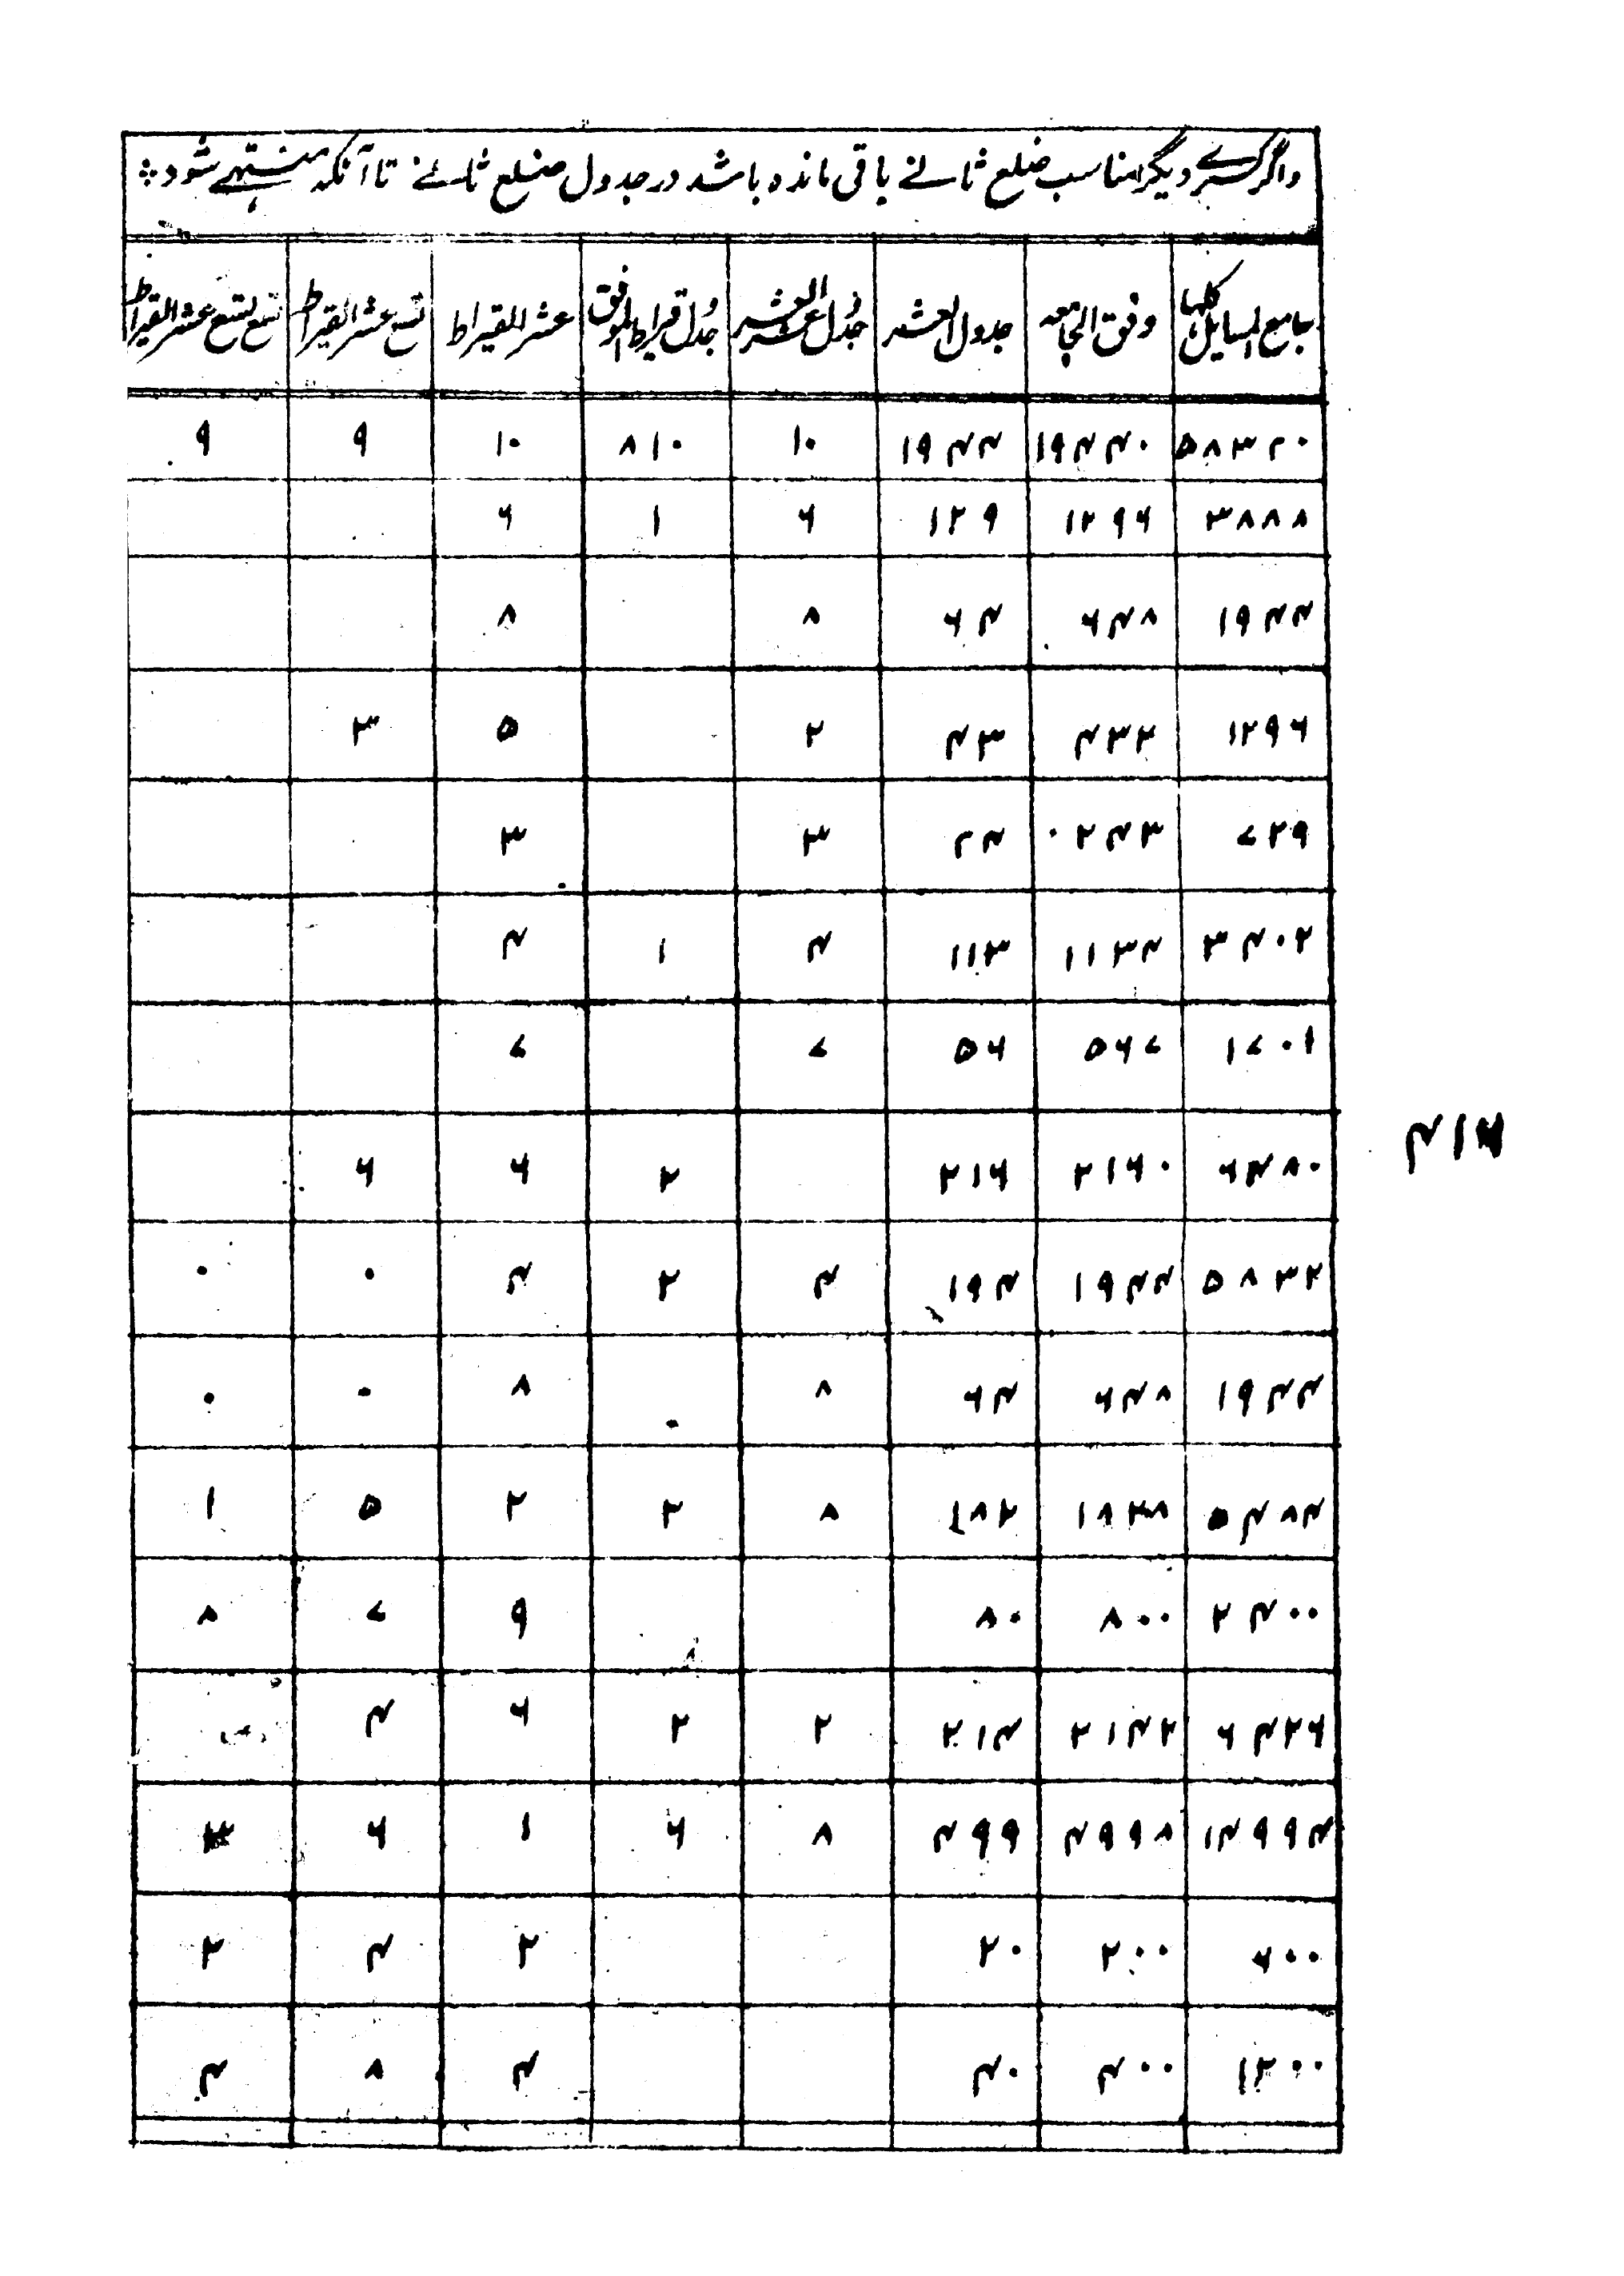 واگر کسرے دیگر مناسب ضلع ثانے باقی مانده باشد در جدول ضلع ثانے تا آنکه منتہے شود
جامع المسایل کلها | وفق الجامعه | جدول العشر | جدول عشر العشر | جدول قیراط الوفق | عشر القیراط | تسع عشر القیراط | تسع تسع عشر القیراط
۵۸۳۲۰ | ۱۹۴۴۰ | ۱۹۴۴ | ۱۰ | ۸۱۰ | ۱۰ | ۹ | ۹
۳۸۸۸ | ۱۲۹۶ | ۱۲۹ | ۶ | ۱ | ۶
۱۹۴۴ | ۶۴۸ | ۶۴ | ۸ | | ۸
۱۲۹۶ | ۴۳۲ | ۴۳ | ۲ | | ۵ | ۳
۷۲۹ | ۲۴۳ | ۲۴ | ۳ | | ۳
۳۴۰۲ | ۱۱۳۴ | ۱۱۳ | ۴ | ۱ | ۴
۱۷۰۱ | ۵۶۷ | ۵۶ | ۷ | | ۷
۶۴۸۰ | ۲۱۶۰ | ۲۱۶ | | ۲ | ۶ | ۶
۵۸۳۲ | ۱۹۴۴ | ۱۹۴ | ۴ | ۲ | ۴ | ۰ | ۰
۱۹۴۴ | ۶۴۸ | ۶۴ | ۸ | ۰ | ۸ | ۰ | ۰
۵۴۸۴ | ۱۸۲۸ | ۱۸۲ | ۸ | ۲ | ۲ | ۵ | ۱
۲۴۰۰ | ۸۰۰ | ۸۰ | | | ۹ | ۷ | ۸
۶۴۲۶ | ۲۱۴۲ | ۲۱۴ | ۲ | ۲ | ۶ | ۴
۱۴۹۹۴ | ۴۹۹۸ | ۴۹۹ | ۸ | ۶ | ۱ | ۶
۶۰۰ | ۲۰۰ | ۲۰ | | | ۲ | ۴ | ۲
۱۲۰۰ | ۴۰۰ | ۴۰ | | | ۴ | ۸ | ۴